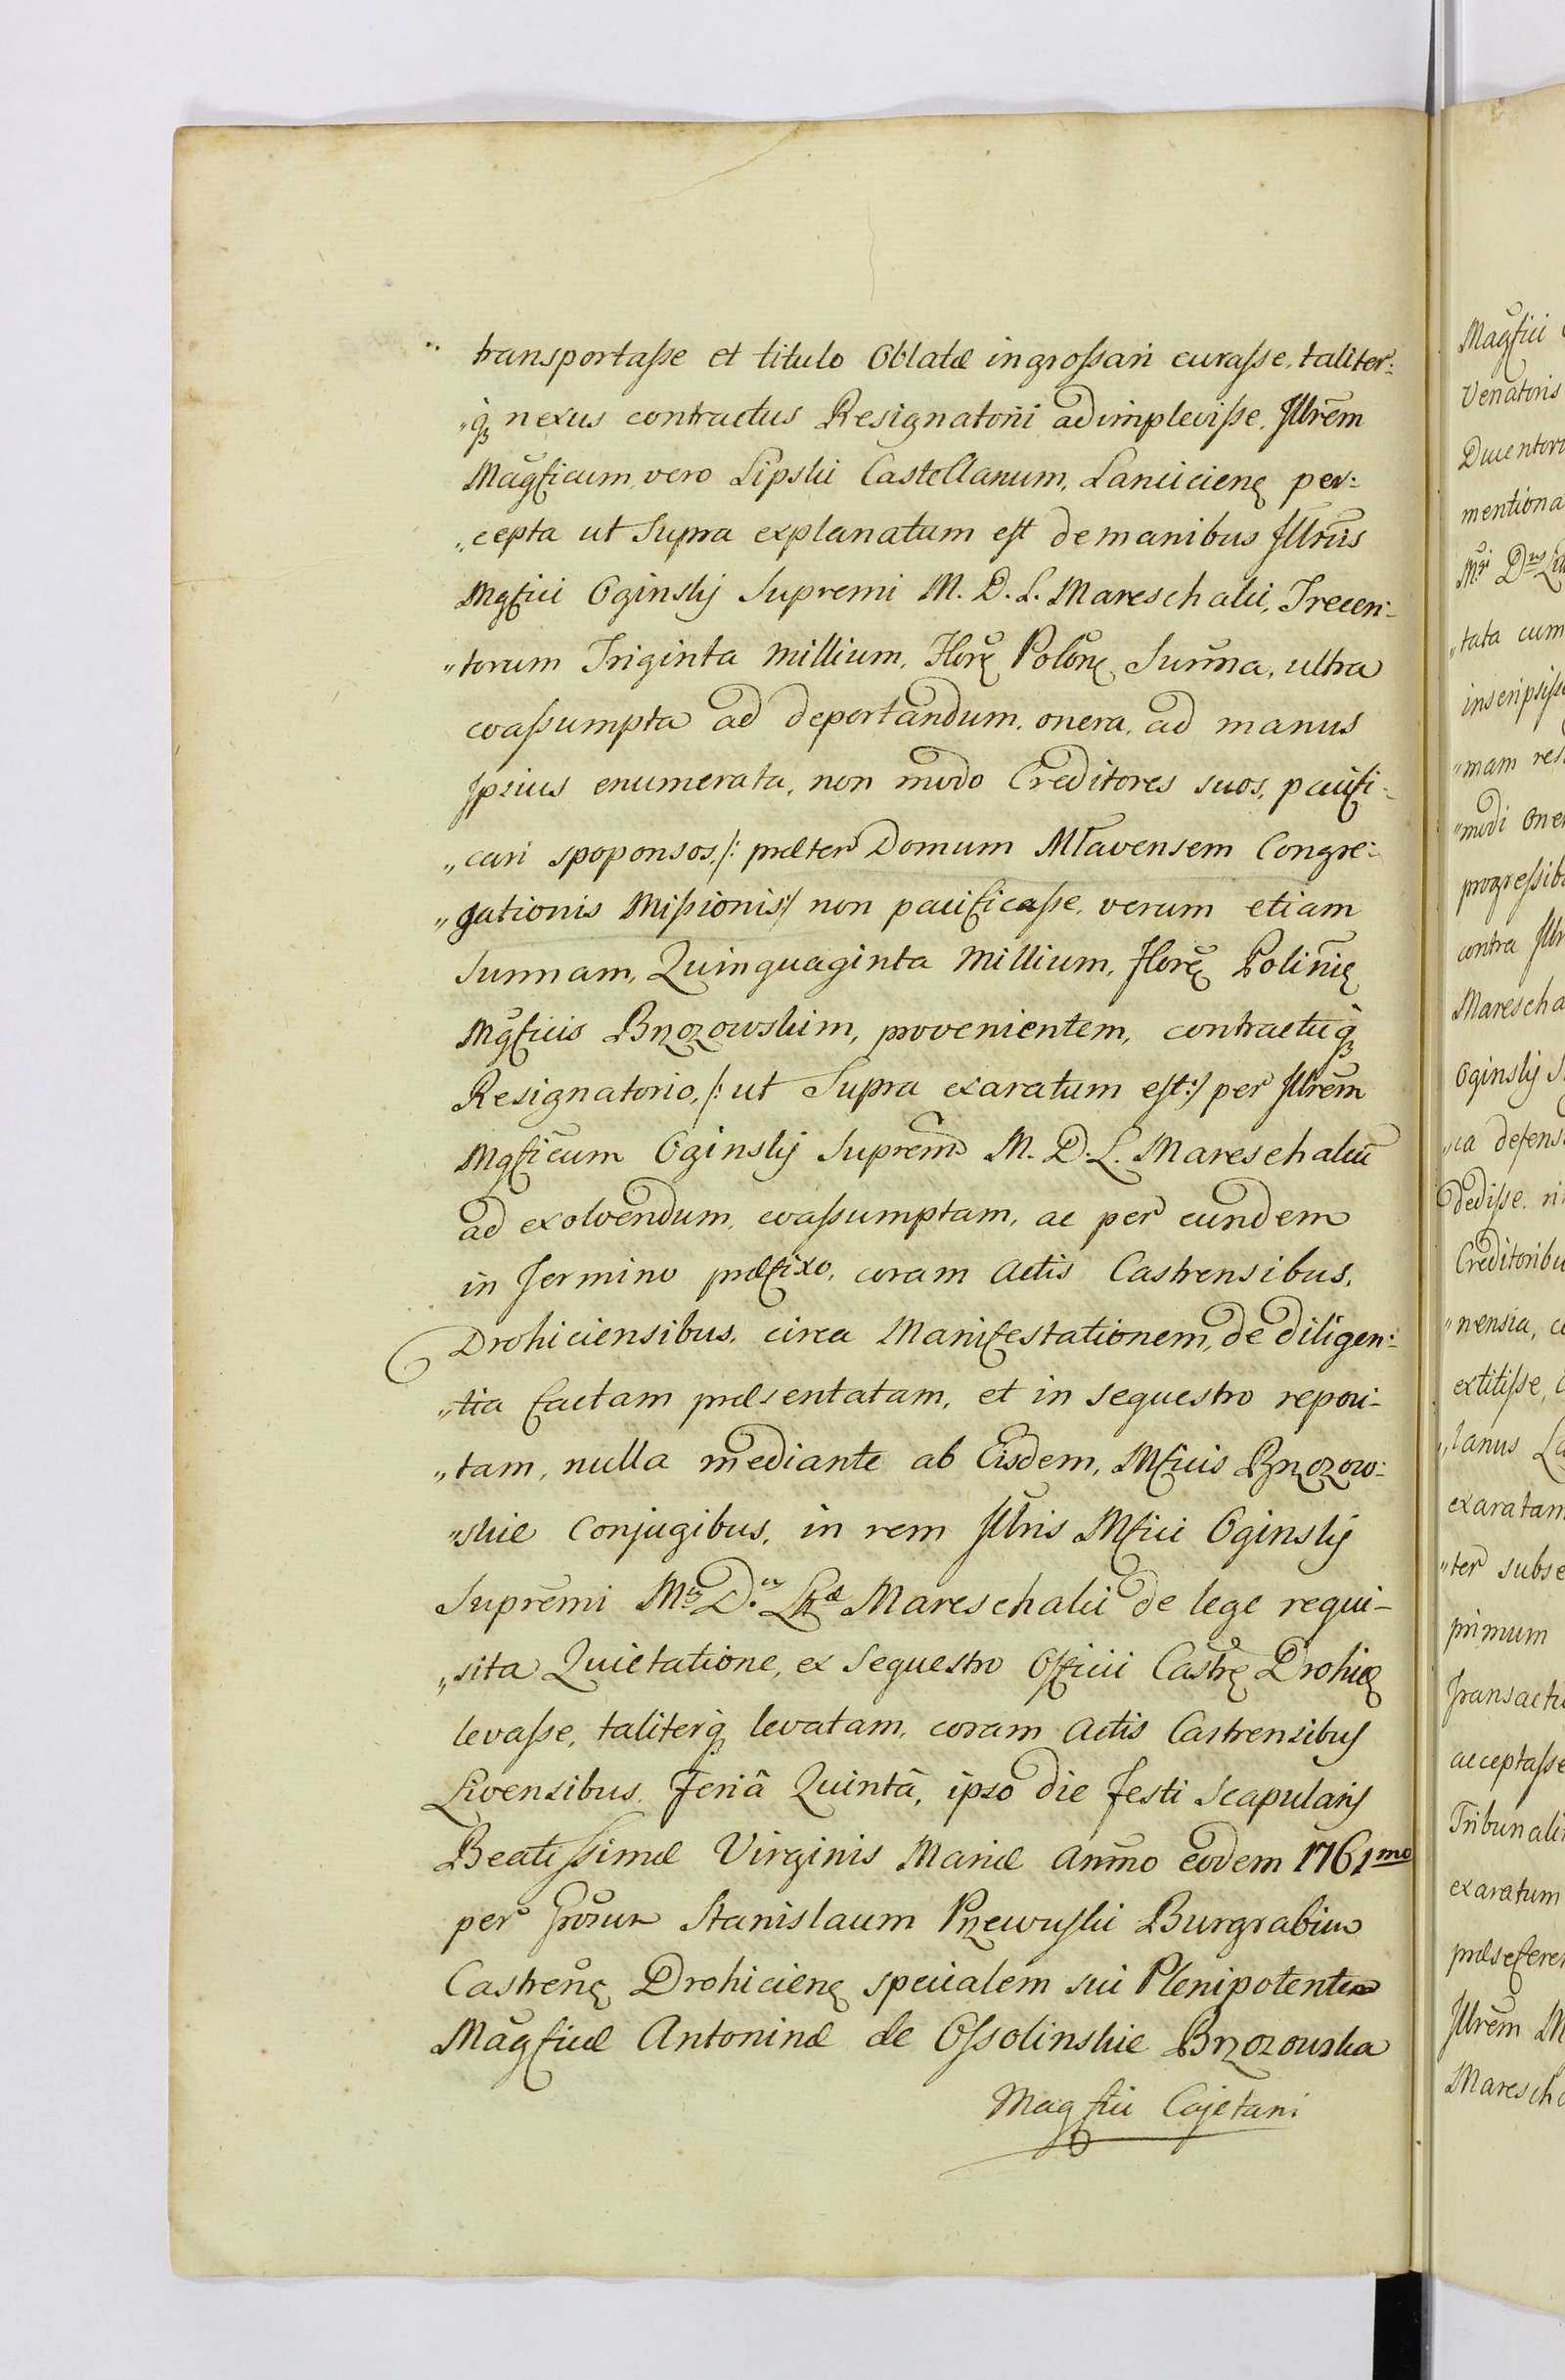 transportasse et titulo Oblatæ ingrossari curasse, taliter:
„q₃ nexus contractus Resignatorii adimplevisse. Jllrem
Magficum vero Lipski Castellanum, Lanciciens per:
„cepta ut Supra explanatum est de manibus Jllris
Mgfici Oginskij Supremi M. D. L. Mareschalci, Trecen:
„torum Triginta Millium, Flor Polon Summa, ultra
coassumpta ad deportandum onera, ad manus
Jpsius enumerata, non modo Creditores suos, pacifi:
„cari spoponsos, /: præter Domum Mlavensem Congre:
„gationis Missionis:/ non pacificasse, verum etiam
Summam, Quinquaginta Millium, Flor Polin
Mgficis Brzozowskim, provenientem, contractuq₃
Resignatorio, /: ut Supra exaratum est:/ per Jllrem
Mgficum Oginskij Supremum M. D. L. Mareschalcu
ad exolvendum, coassumptam, ac per eundem
in Termino præfixo, coram Actis Castrensibus,
Drohiciensibus, circa Manifestationem, de diligen:
„tia factam præsentatam, et in sequestro reposi-
„tam, nulla mediante ab Eisdem, Mficis Brzozow:
„skie Conjugibus, in rem Jllris Mfici Oginskij
Supremi M. D. L. Mareschalci de lege requi-
„sita Quietatione, ex Sequestro Officii Castr Drohic
levasse, taliterq₃ levatam, coram Actis Castrensibus
Livensibus, Feriâ Quintâ, ipso die festi Scapularis
Beatissimæ Virginis Mariæ Anno eodem 1761mo
per Grosum Stanislaum Przewuski Burgrabium
Castrens Drohiciens specialem sui Plenipotentem
Magficæ Antoninæ de Ossolinskie Brzozowska
Magfici Cajetani
Magfici
Venatoris
Ducentoru
mentiona
„tata cum
inscripsisse
„mam res
„modi One
progressibu
contra Jllr
Marescha
Oginskij S
„ca defens
Dedisse. ni
Creditoribu
„nensia, c
extitisse,
„lanus La
exaratam
„ter subse
primum
Transactu
acceptasse
Tribunali
exaratum
præseferen
Jllrem M
Marescha